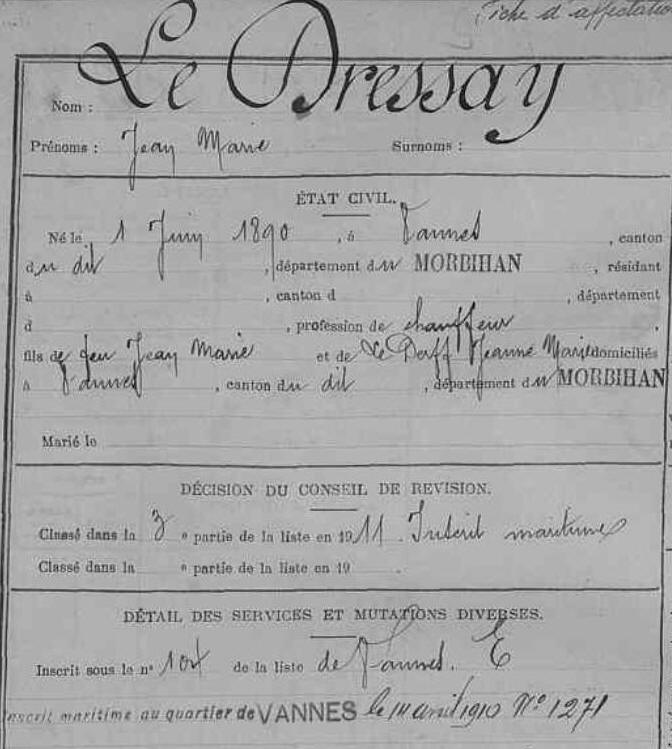 Fiche d'affectation
Nom : Le Dressay
Prénoms : Jean Marie Surnoms :
ÉTAT CIVIL.
Né le 1 Juin 1890 , à Vannes , canton
du dit , département du MORBIHAN , résidant
à , canton d , département
d , profession de chauffeur ,
fils de feu Jean Marie et de Le Doff Jeanne Marie domiciliés
à Vannes , canton du dit , département du MORBIHAN
Marié le
DÉCISION DU CONSEIL DE REVISION.
Classé dans la 3 e partie de la liste en 1911. Inscrit maritime
Classé dans la e partie de la liste en 19 .
DÉTAIL DES SERVICES ET MUTATIONS DIVERSES.
Inscrit sous le n° de la liste de Vannes. E
Inscrit maritime au quartier de VANNES le avril 1910 N° 1271